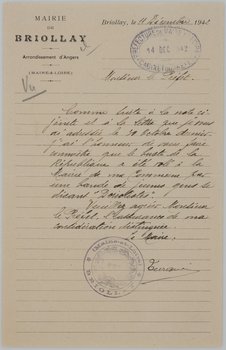 MAIRIE
DE
BRIOLLAY
Arrondissement d'Angers
(MAINE-&-LOIRE)
Vu
Briollay, le 11 Décembre 194
14 DEC
Monsieur le Préfet,
Comme suite à la note ci
jointe et à la lettre que je vous
ai adressée le 30 octobre dernier,
j'ai l'honneur de vous faire
connaître que le buste de la
République a été volé à la
Mairie de ma Commune par
une bande de jeunes gens se
disant
Veuillez agréer Monsieur
le Préfet, l'assurance de ma
considération distinguée
Le Maire,
BRIOLLAY